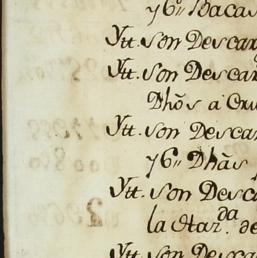 y 6.. Bacas
Ytt. Son Descar
Ytt. Son Descar
Dhõs a Cru
Ytt. Son Descar
y 6.. Dhãs p
Ytt. Son Desca
la otar.da de
Ytt. Son Desca